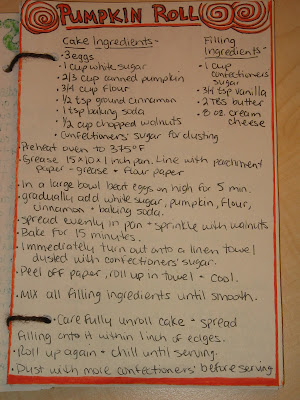 PUMPKIN ROLL
Cake Ingredients-
• 3 eggs
• 1 cup white sugar
• 2/3 cup canned pumpkin
• 3/4 cup flour
• 1/2 tsp ground cinnamon
• 1 tsp baking soda
• 1/2 cup chopped walnuts
• confectioners' sugar for dusting
Filling
Ingredients-
• 1 cup
confectioners
sugar
• 3/4 tsp vanilla
• 2 TBS butter
• 8 oz. cream
cheese
• Preheat oven to 375°F
• Grease 15x10x1 inch pan. Line with parchment
paper - grease + flour paper
• In a large bowl beat eggs on high for 5 min.
• gradually add white sugar, pumpkin, flour,
cinnamon + baking soda.
• spread evenly in pan + sprinkle with walnuts
• Bake for 15 minutes.
• Immediately turn out onto a linen towel
dusted with confectioners' sugar.
• Peel off paper, roll up in towel + cool.
• Mix all filling ingredients until smooth.
• Carefully unroll cake + spread
filling onto it within 1 inch of edges.
• Roll up again + chill until serving.
• Dust with more confectioners' before serving